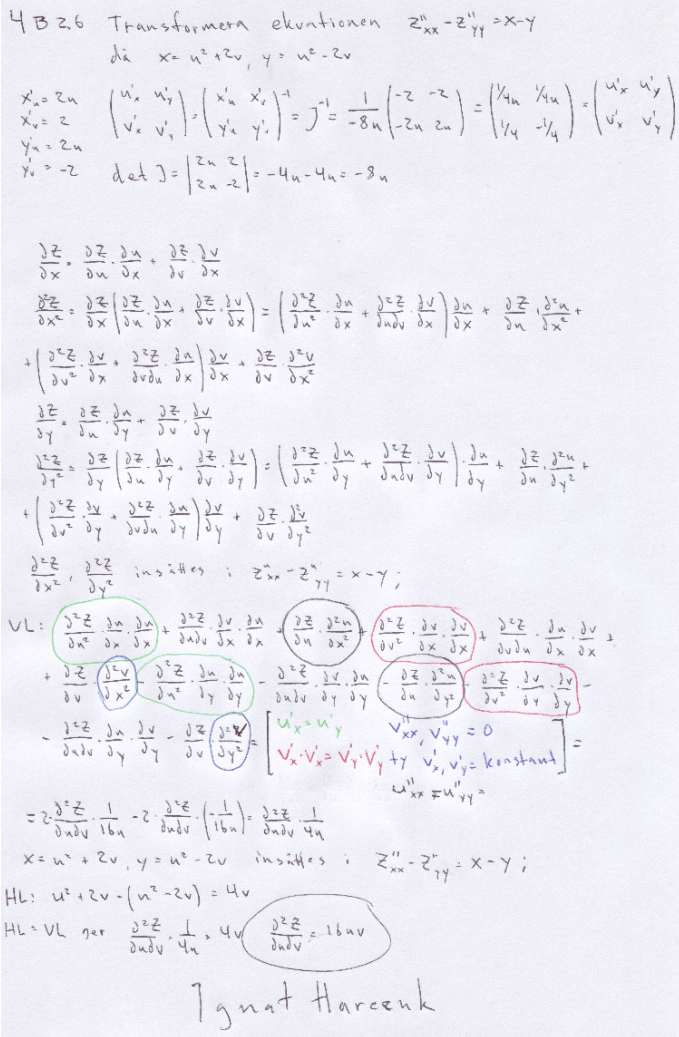 4B26 Transformera ekvationen z''xx - z''yy = x-y
då x = u² + 2v, y = u² - 2v
x'u = 2u
x'v = 2
y'u = 2u
y'v = -2
(u'x u'y / v'x v'y) = (x'u x'v / y'u y'v)⁻¹ = J⁻¹ = 1/(-8u) (-2 -2 / -2u 2u) = (1/4u 1/4u / 1/4 -1/4) = (u'x u'y / v'x v'y)
det J = |2u 2 / 2u -2| = -4u - 4u = -8u
∂z/∂x = ∂z/∂u · ∂u/∂x + ∂z/∂v · ∂v/∂x
∂²z/∂x² = ∂z/∂x (∂z/∂u · ∂u/∂x + ∂z/∂v · ∂v/∂x) = (∂²z/∂u² · ∂u/∂x + ∂²z/∂u∂v · ∂v/∂x) ∂u/∂x + ∂z/∂u · ∂²u/∂x² +
+ (∂²z/∂v² · ∂v/∂x + ∂²z/∂v∂u · ∂u/∂x) ∂v/∂x + ∂z/∂v · ∂²v/∂x²
∂z/∂y = ∂z/∂u · ∂u/∂y + ∂z/∂v · ∂v/∂y
∂²z/∂y² = ∂z/∂y (∂z/∂u · ∂u/∂y + ∂z/∂v · ∂v/∂y) = (∂²z/∂u² · ∂u/∂y + ∂²z/∂u∂v · ∂v/∂y) · ∂u/∂y + ∂z/∂u · ∂²u/∂y² +
+ (∂²z/∂v² · ∂v/∂y + ∂²z/∂v∂u · ∂u/∂y) ∂v/∂y + ∂z/∂v · ∂²v/∂y²
∂²z/∂x², ∂²z/∂y² insättes i z''xx - z''yy = x-y;
VL: ∂²z/∂u² · ∂u/∂x · ∂u/∂x + ∂²z/∂u∂v · ∂v/∂x · ∂u/∂x + ∂z/∂u · ∂²u/∂x² + ∂²z/∂v² · ∂v/∂x · ∂v/∂x + ∂²z/∂v∂u · ∂u/∂x · ∂v/∂x +
+ ∂z/∂v · ∂²v/∂x² - ∂²z/∂u² · ∂u/∂y · ∂u/∂y - ∂²z/∂u∂v · ∂v/∂y · ∂u/∂y - ∂z/∂u · ∂²u/∂y² - ∂²z/∂v² · ∂v/∂y · ∂v/∂y -
- ∂²z/∂u∂v · ∂u/∂y · ∂v/∂y - ∂z/∂v · ∂²v/∂y² = [u'x = u'y v''xx, v''yy = 0
v'x · v'x = v'y · v'y ty v'x, v'y = konstant] =
u''xx = u''yy =
= 2 · ∂²z/∂u∂v · 1/16u - 2 · ∂²z/∂u∂v · (-1/16u) = ∂²z/∂u∂v · 1/4u
x = u² + 2v, y = u² - 2v insättes i z''xx - z''yy = x-y;
HL: u² + 2v - (u² - 2v) = 4v
HL = VL ger ∂²z/∂u∂v · 1/4u = 4v ∂²z/∂u∂v = 16uv
Ignat Harczuk